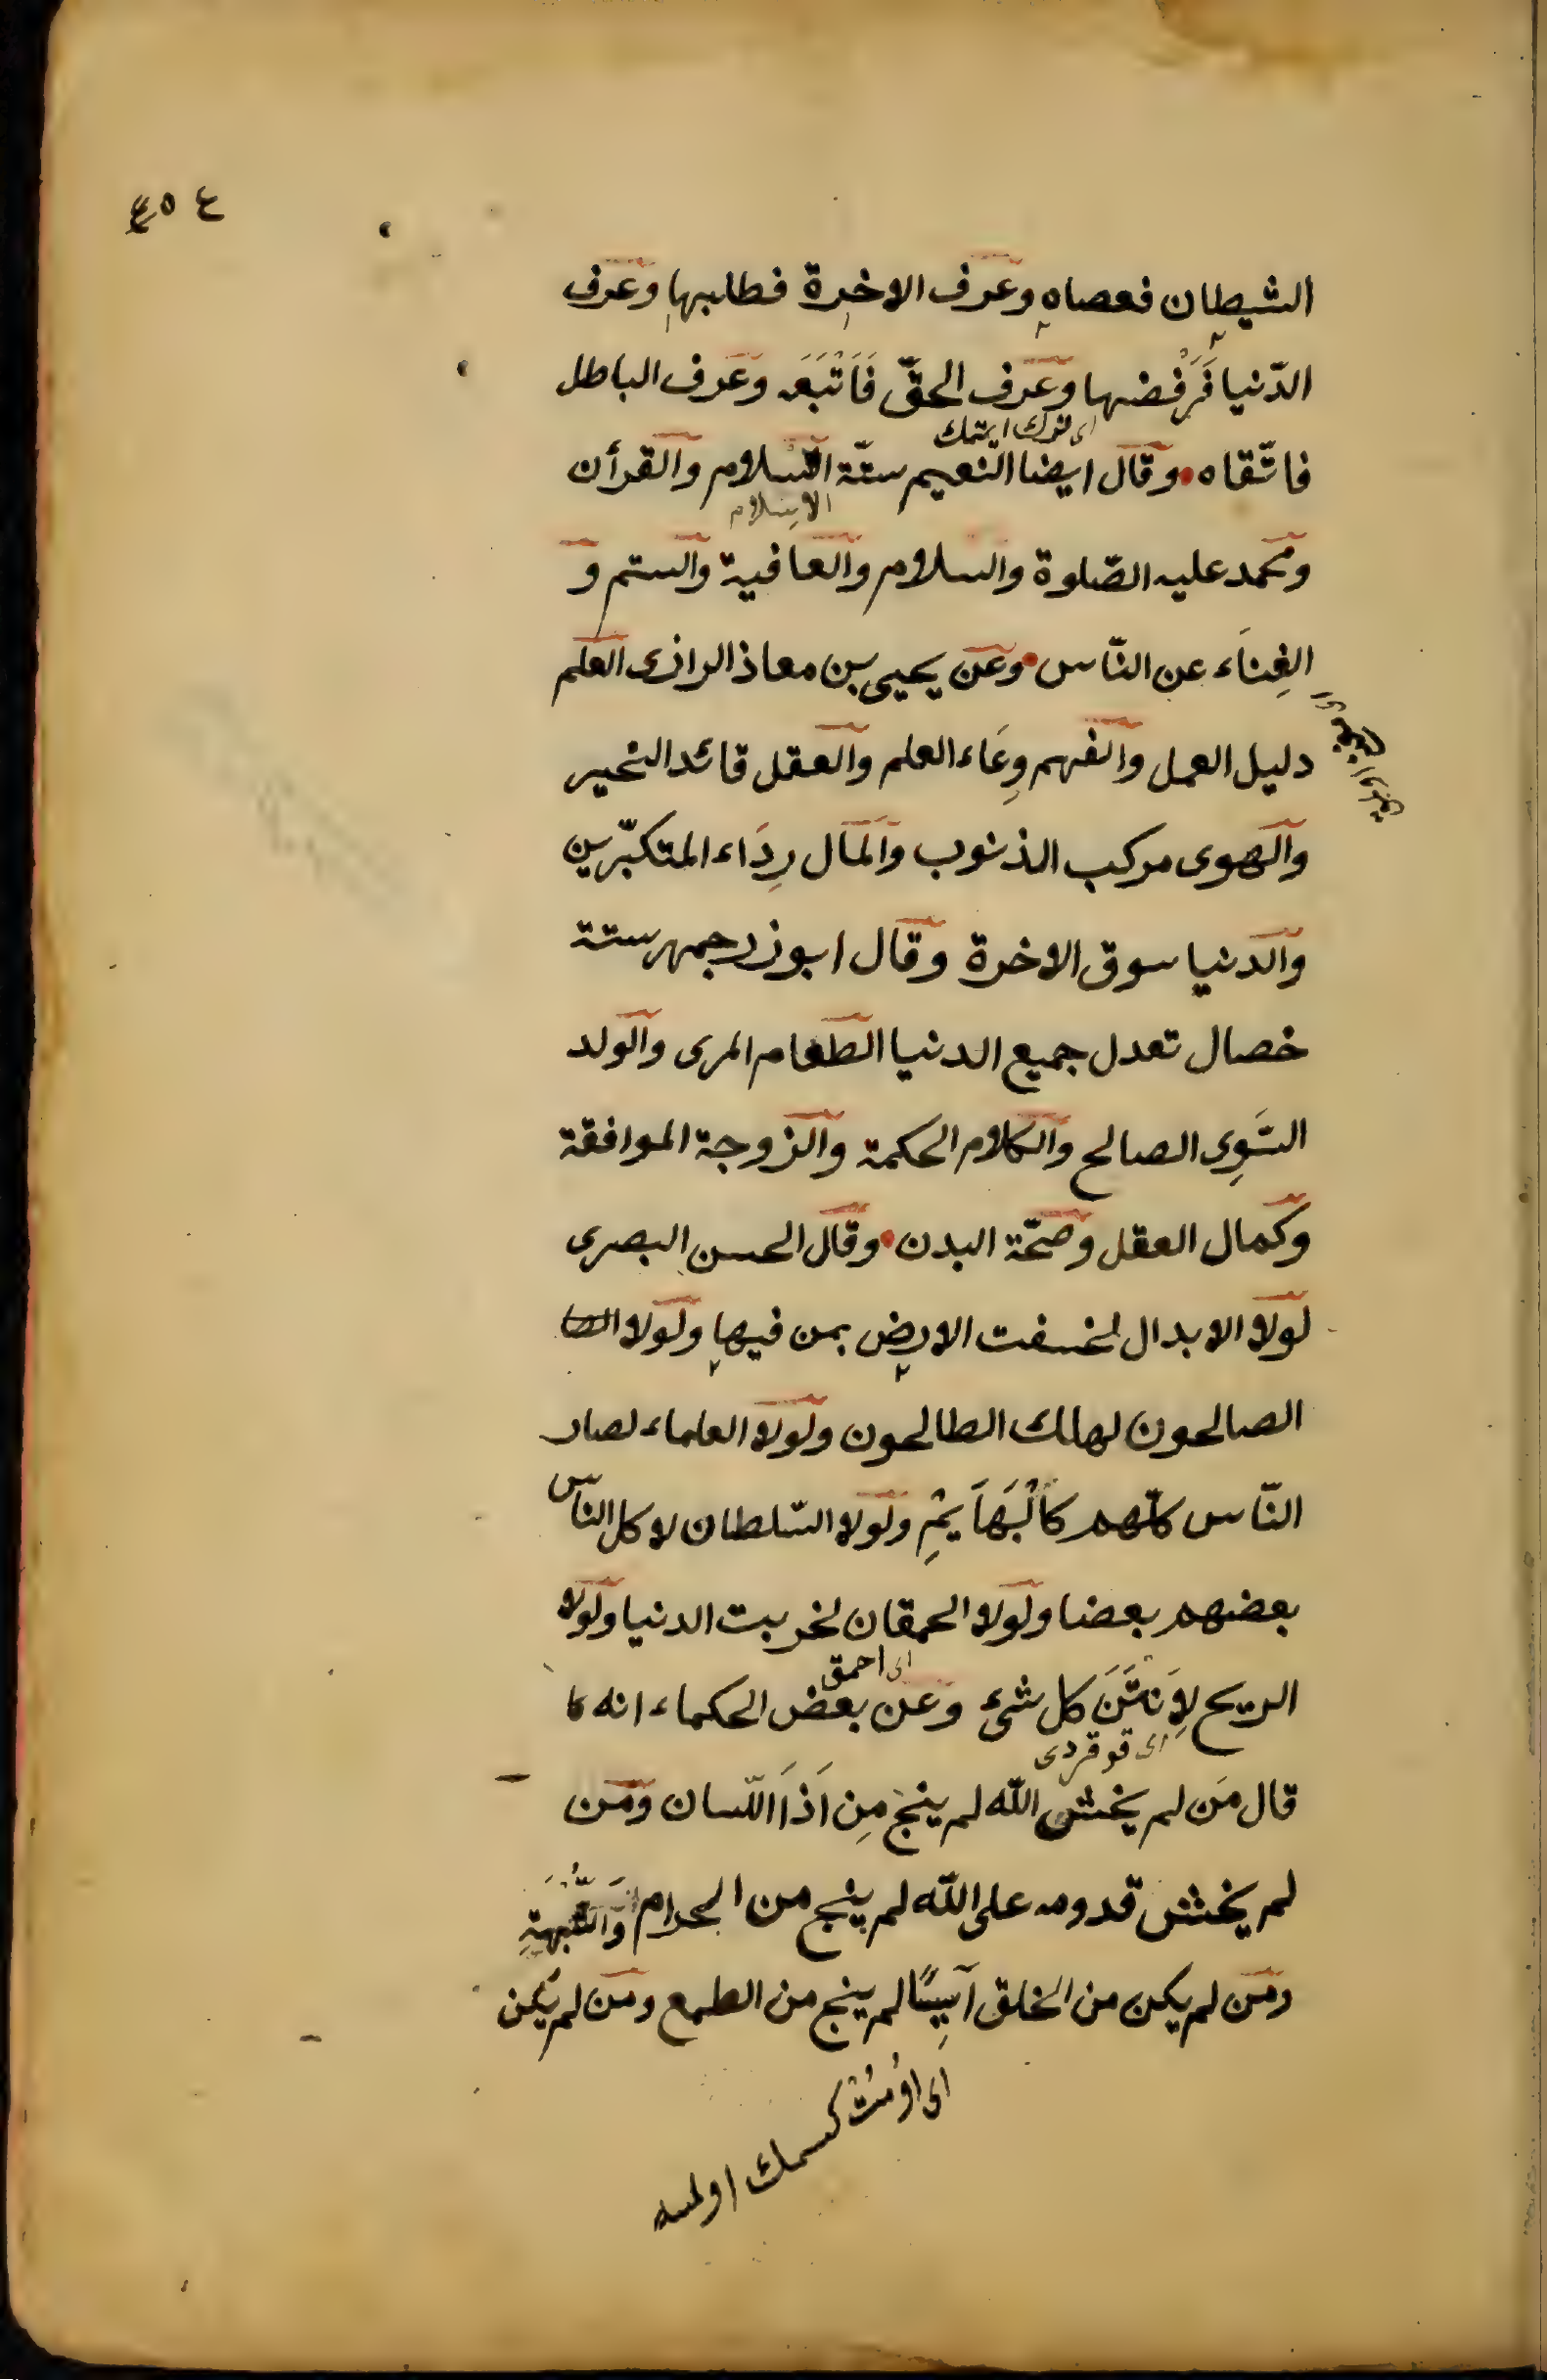 ٤٥٤
الشيطان فعصاه وعرف الاخرة فطلبها وعرف
الدّنيا فَرَفَضْها وعرف الحقّ فَاَتْبَعَه وعرف الباطل
اى ترك ايتمك
فاتّقاه وقال ايضا النعيم ستّة السلام والقرأن
الاسلام
ومحمد عليه الصّلوة والسلام والعافية والستر و
الغِنَاء عن النّاس وعن يحيى بن معاذ الرازى العلم
دليل العمل والفهم وِعَاء العلم والعقل قائد الخير
والهوى مركب الذنوب والمال رِدَاء المتكبّرين
والدنيا سوق الاخرة وقال ابوزرجمهر ستة
خصال تعدل جميع الدنيا الطعام المرى والولد
السَوِى الصالح والكلام الحكمة والزوجة الموافقة
وكمال العقل وصحّة البدن وقال الحسن البصرى
لولا الابدال لخسفت الارض بمن فيها ولولا الصا
الصالحون لهلك الطالحون ولولا العلماء لصار
النّاس كلّهم كَالْبَهَايِمِ ولولا السّلطان لاكل الناس
بعضهم بعضا ولولا الحمقان لخربت الدنيا ولولا
اى احمق
الريح لَاَنْتَنَ كل شئ وعن بعض الحكماء انه كا
اى قوقردى
قال مَن لم يخش الله لم ينج مِن اَذَا اللّسان ومن
لم يخش قدومه على الله لم ينج من الحرام وَالشُّبْهَةِ
ومن لم يكن من الخلق آيِسًا لم ينج من الطمع ومن لم يكن
اى اومُت كسمك اولمسه